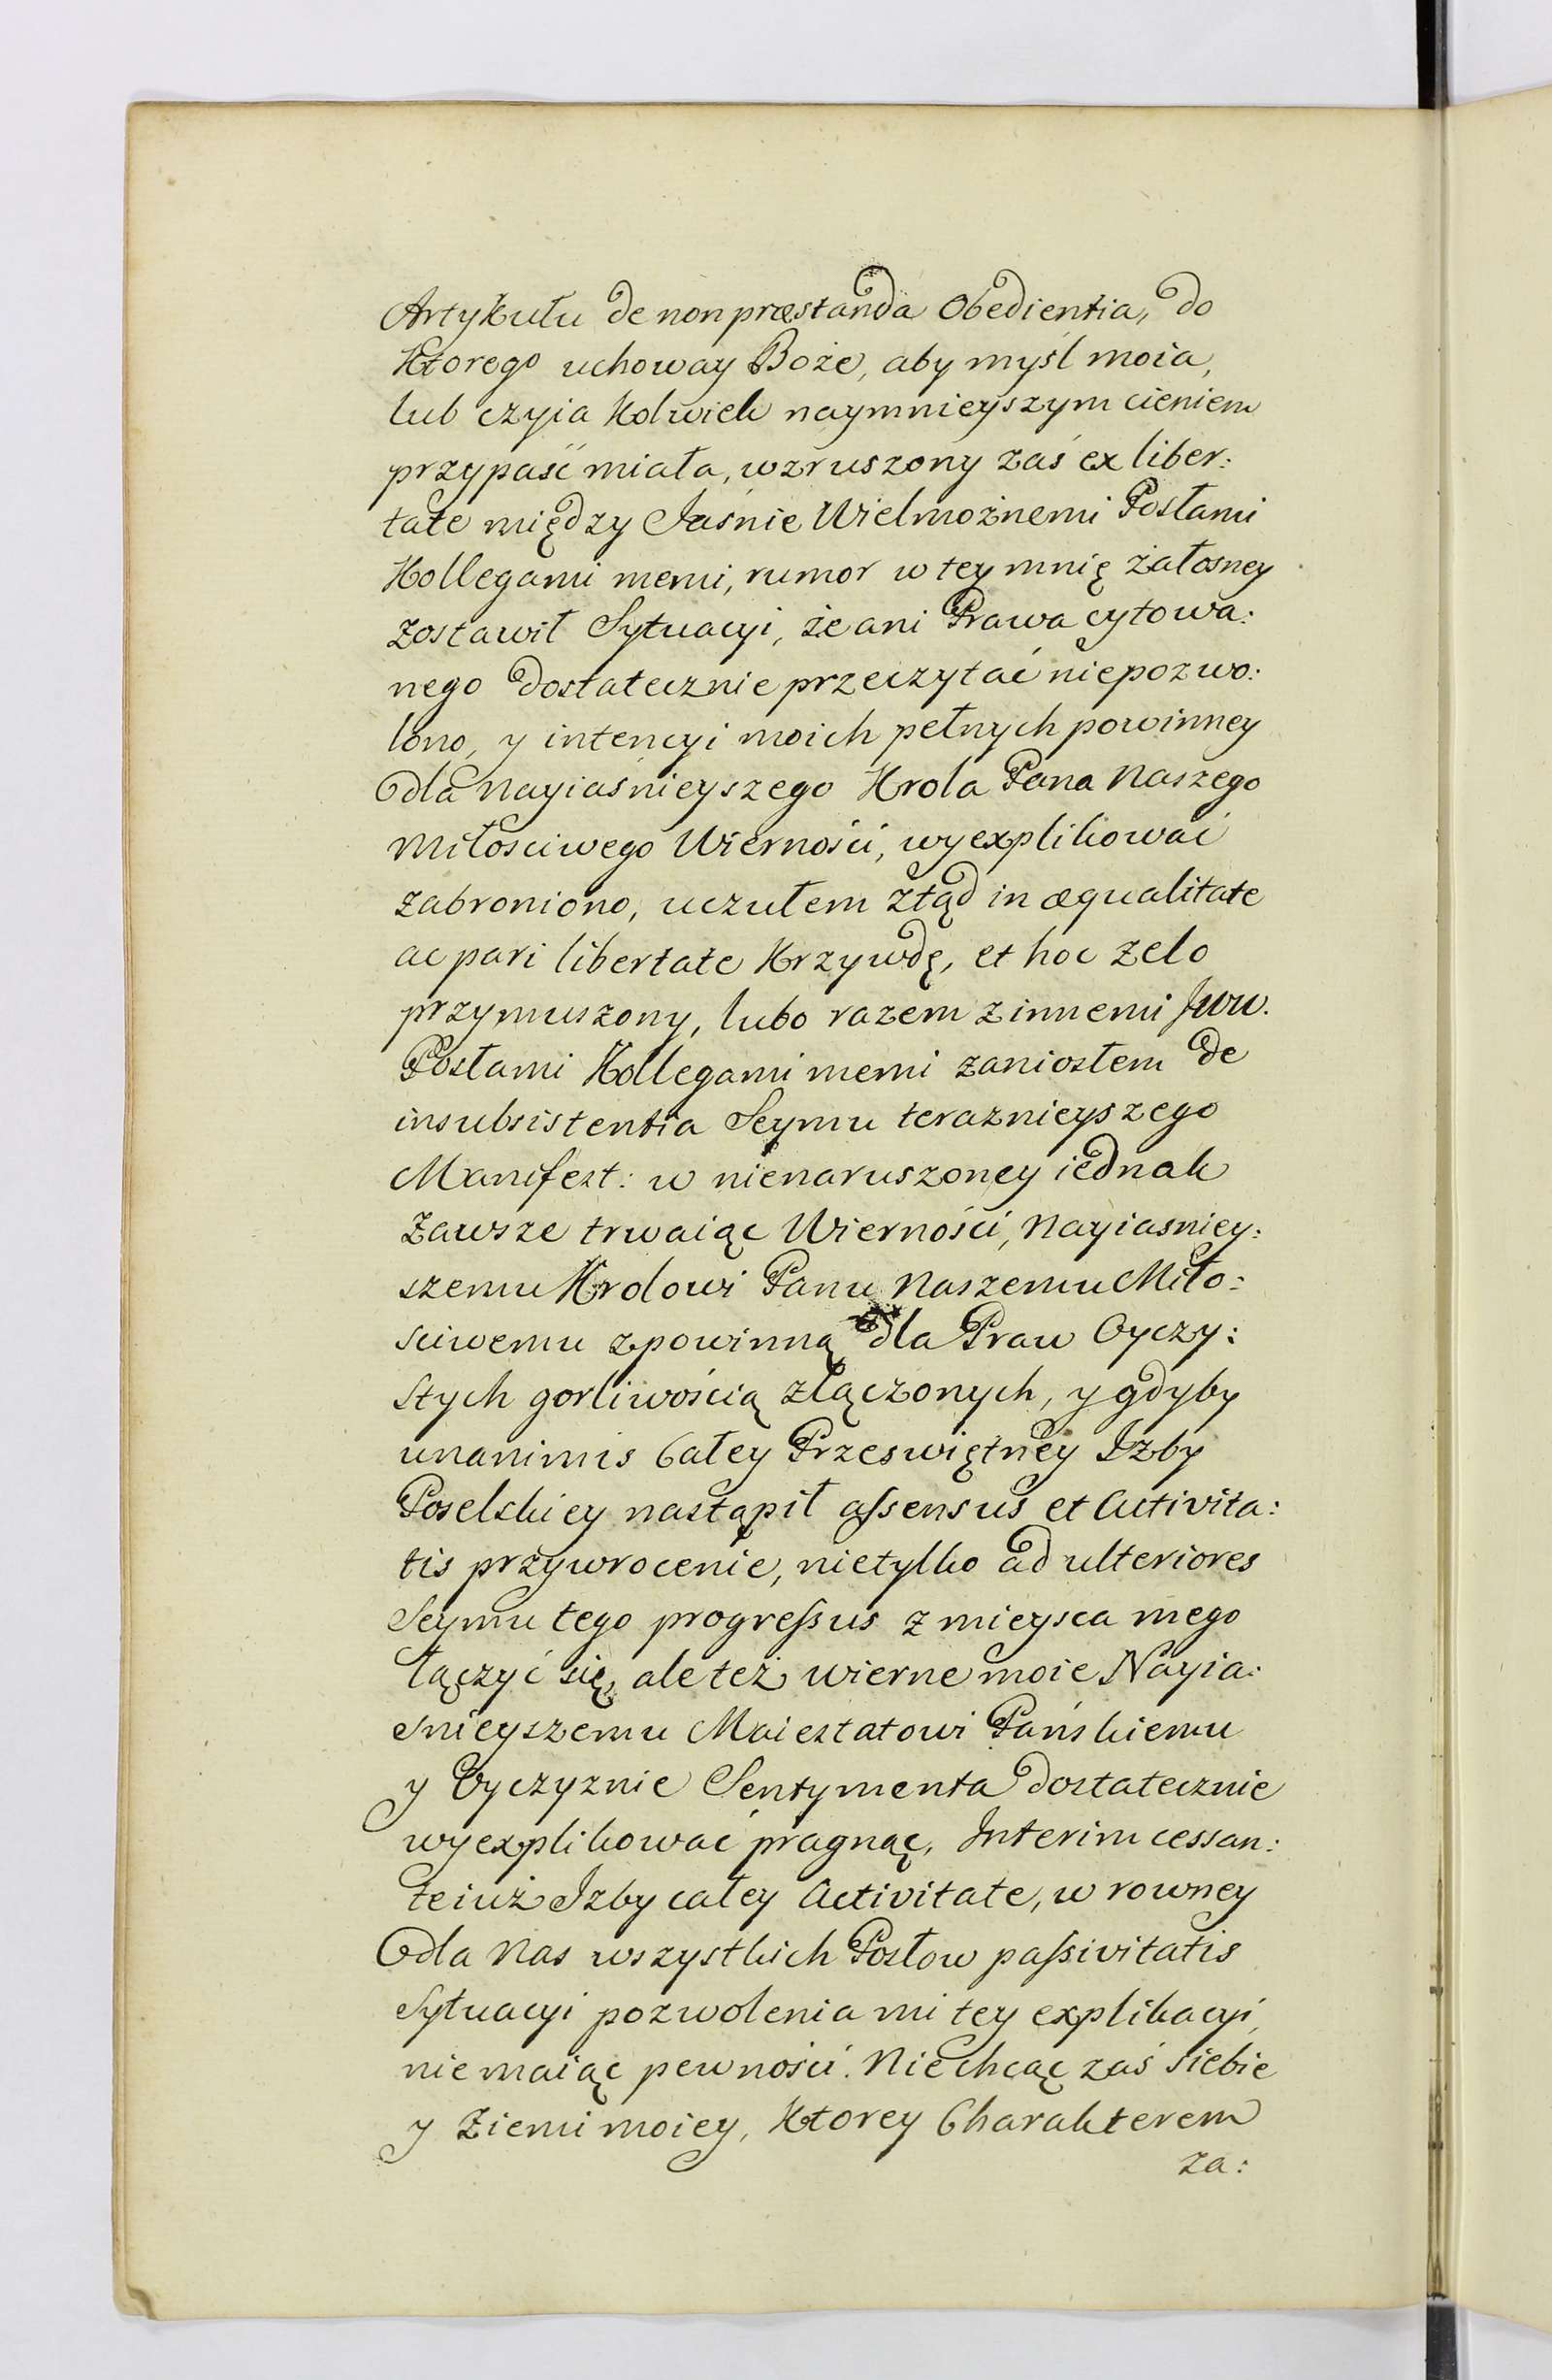 Artykułu de non præstanda Obedientia, do
Ktorego uchoway Boże, aby myśl moia,
lub czyia Kolwiek naymnieyszym cieniem
przypaść miała, wzruszony zaś ex liber:
tate między Jaśnie Wielmożnemi Posłami
Kollegami memi, rumor w tey mnię żałosney
zostawił Sytuacyi, że ani Prawa cytowa:
nego dostatecznie przeczytać niepozwo:
lono, y intencyi moich pełnych powinney
dla Nayiaśnieyszego Krola Pana Naszego
Miłosciwego Wierności, wyexplikować
zabroniono, uczułem ztąd in æqualitate
ac pari libertate Krzywdę, et hoc zelo
przymuszony, lubo razem z innemi Jww.
Posłami Kollegami memi zaniosłem de
insubsistentia Seymu teraznieyszego
Manifest: w nienaruszoney iednak
Zawsze trwaiąc Wierności, Nayiasniey:
szemu Krolowi Panu Naszemu Miło:
sciwemu z powinną dla Praw Oyczy:
stych gorliwością złączonych, y gdyby
unanimis Całey Przeswiętney Izby
Poselskiey nastąpił assensus et Activita:
tis przywrocenie, nietylko ad ulteriores
Seymu tego progressus z mieysca mego
łączyć się, ale też wierne moie Nayia:
snieyszemu Maiestatowi Pańskiemu
y Oyczyznie Sentymenta dostatecznie
wyexplikować pragnąc, Interim cessan:
te iuż Izby całey Activitate, w rowney
dla Nas wszystkich Posłow passivitatis
Sytuacyi pozwolenia mi tey explikacyi,
nie maiąc pewności. Nie chcąc zaś siebie
y Ziemi moiey, Ktorey Charakterem
za: